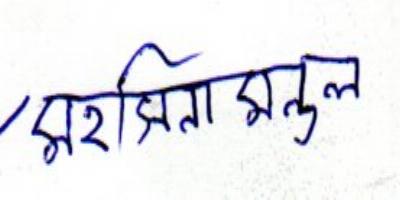 মহসিনা মন্ডল